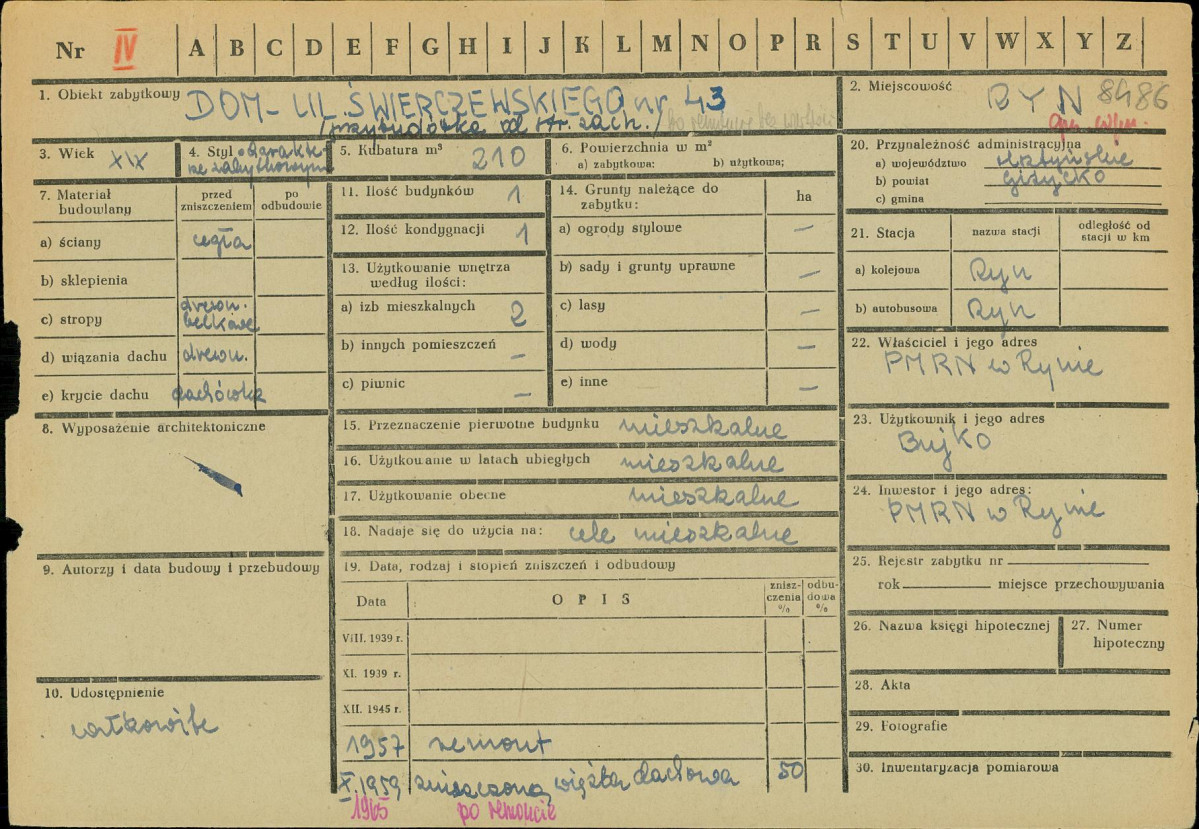 Nr IV A B C D E F G H I J K L M N O P R S T U V W X Y Z
1. Obiekt zabytkowy DOM - UL. ŚWIERCZEWSKIEGO nr. 43
/przybudówka od str. zach./ po remoncie bez
2. Miejscowość RYN 8486
3. Wiek XIX
4. Styl o charakte-
rze zabytkowym
5. Kubatura m³ 210
6. Powierzchnia w m²
a) zabytkowa: b) użytkowa;
7. Materiał budowlany
przed zniszczeniem
po odbudowie
a) ściany cegła
b) sklepienia
c) stropy drewn.
belkowe
d) wiązania dachu drewn.
e) krycie dachu dachówka
8. Wyposażenie architektoniczne
9. Autorzy i data budowy i przebudowy
10. Udostępnienie
całkowite
11. Ilość budynków 1
12. Ilość kondygnacji 1
13. Użytkowanie wnętrza
według ilości:
a) izb mieszkalnych 2
b) innych pomieszczeń –
c) piwnic –
14. Grunty należące do
zabytku:
ha
a) ogrody stylowe –
b) sady i grunty uprawne –
c) lasy –
d) wody –
e) inne –
15. Przeznaczenie pierwotne budynku mieszkalne
16. Użytkowanie w latach ubiegłych mieszkalne
17. Użytkowanie obecne mieszkalne
18. Nadaje się do użycia na: cele mieszkalne
19. Data, rodzaj i stopień zniszczeń i odbudowy
Data
OPIS
znisz-
czenia
%
odbu-
dowa
%
VIII. 1939 r.
XI. 1939 r.
XII. 1945 r.
1957 remont
X. 1959 zniszczona więźba dachowa 50
1965 po remoncie
20. Przynależność administracyjna
a) województwo olsztyńskie
b) powiat Giżycko
c) gmina
21. Stacja
nazwa stacji
odległość od
stacji w km
a) kolejowa Ryn
b) autobusowa Ryn
22. Właściciel i jego adres
PMRN w Rynie
23. Użytkownik i jego adres
Bujko
24. Inwestor i jego adres:
PMRN w Rynie
25. Rejestr zabytku nr
rok miejsce przechowywania
26. Nazwa księgi hipotecznej
27. Numer
hipoteczny
28. Akta
29. Fotografie
30. Inwentaryzacja pomiarowa